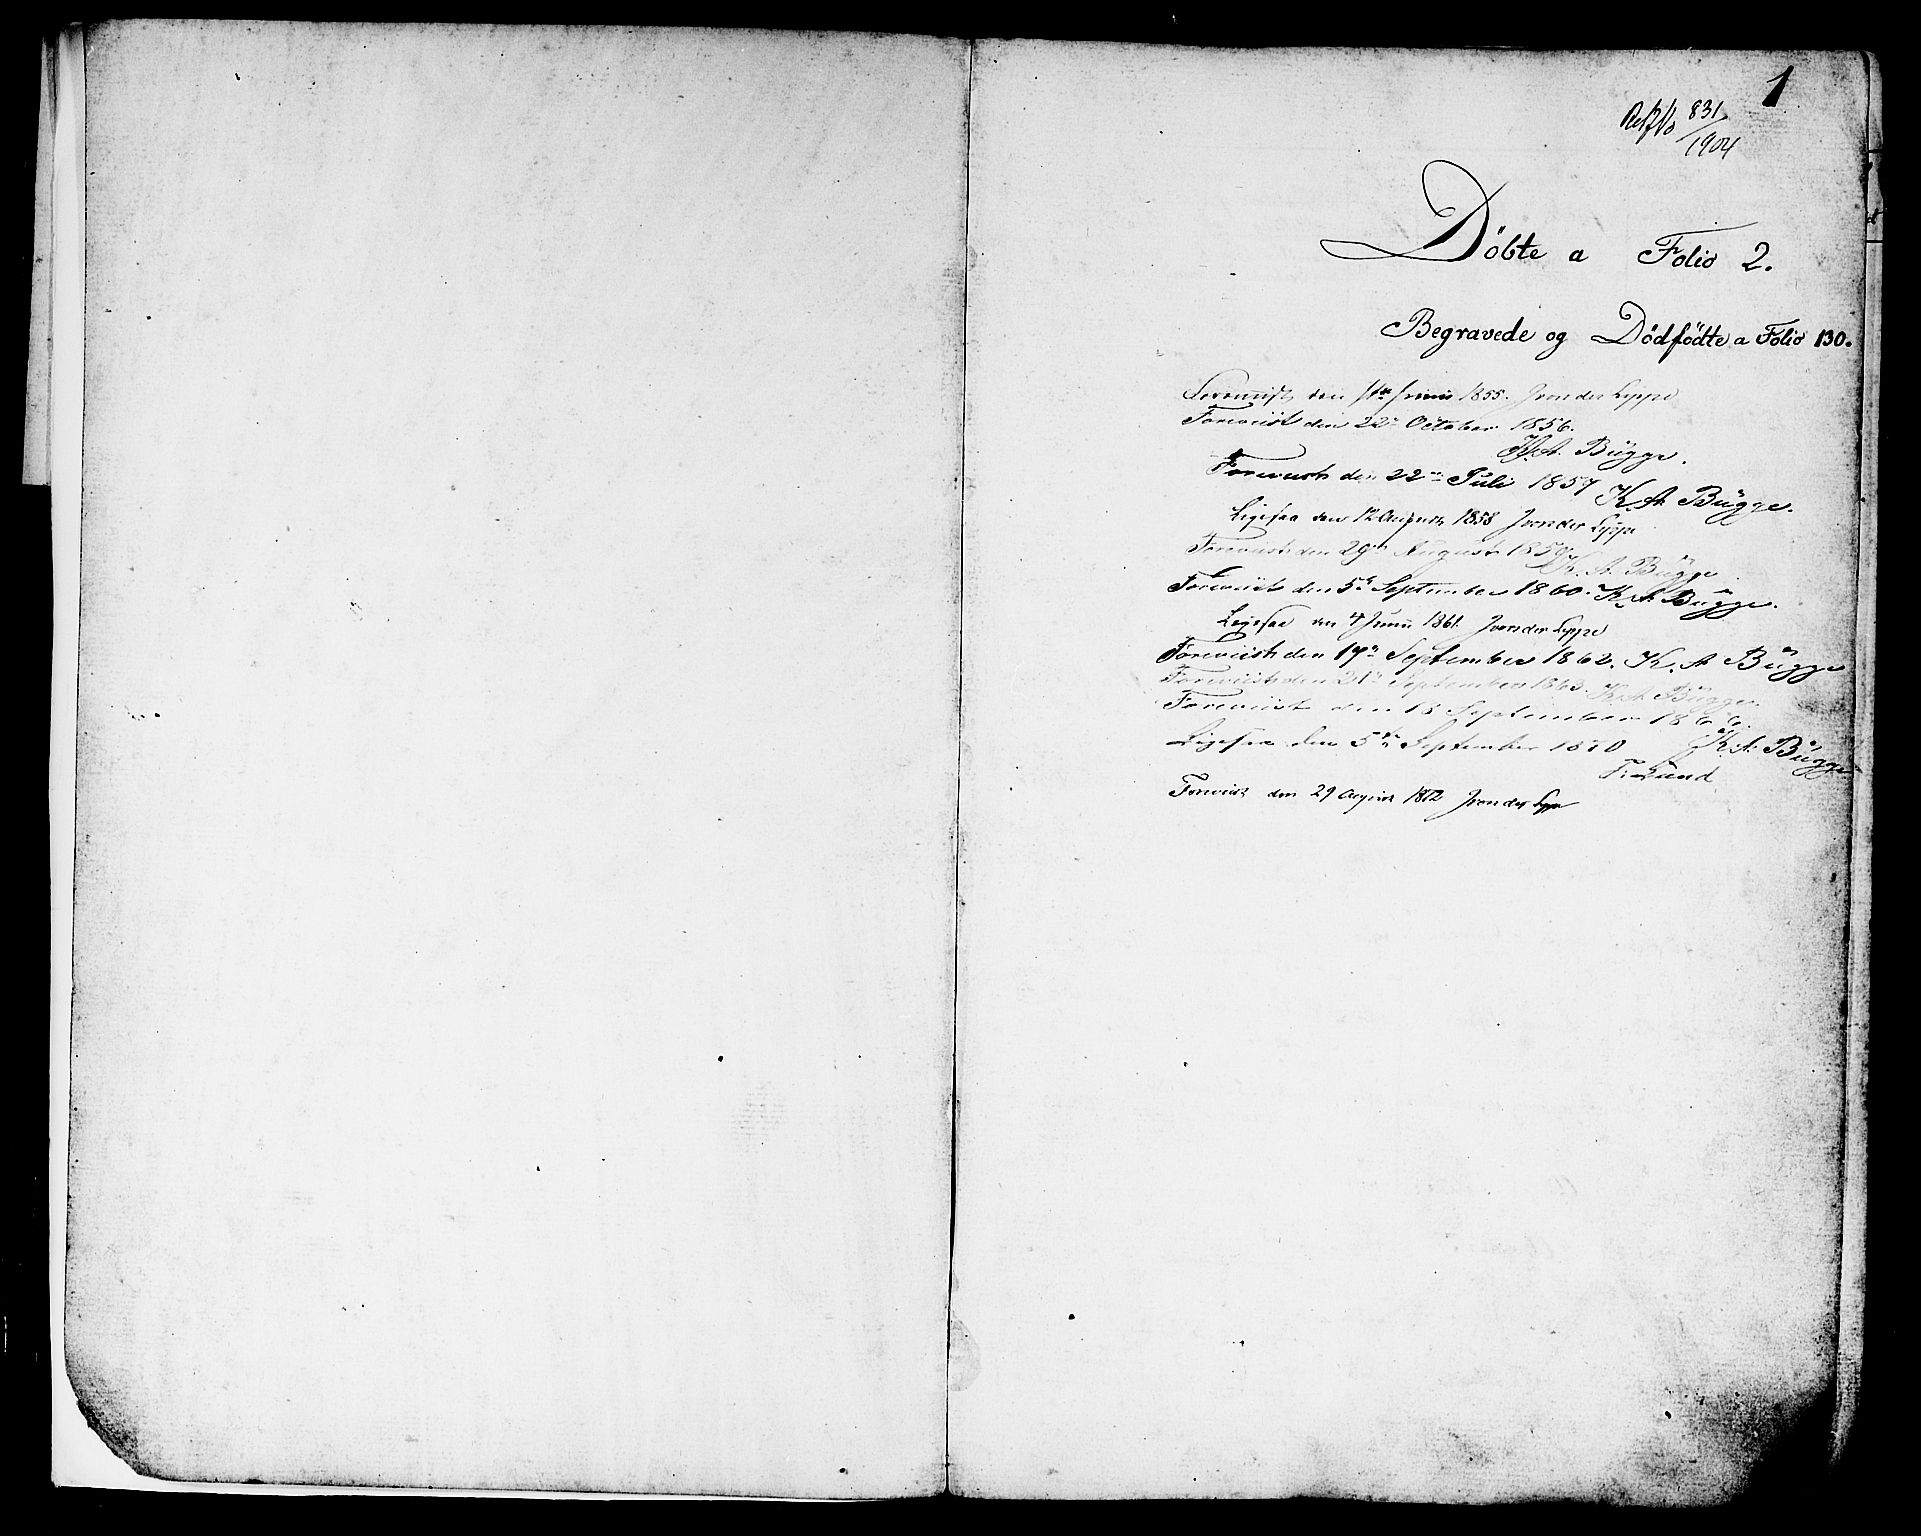 1
831
/1904
Döbte a Folio 2.
Begravede og Dödfödte a Folio 130.
den Juni 1855. J von der Lippe
Foreviist den 22de October 1856.
K. A. Bügge.
Foreviist den 22de Juli 1857 K. A. Bügge.
Ligesaa den 12 August 1858 J von der Lippe
Foreviist den 29de August 1859. K. A. Bügge
Foreviist den 5te September 1860. K. A. Bügge.
Ligesaa den 4 Juni 1861. J von der Lippe
Foreviist den 17de September 1862. K. A. Bügge
Foreviist den 21de September 1863. K. A. Bügge
Foreviist den 18 September 1866.
K. A. Bügge
Ligesaa den 5te September 1870
F. Lund
Foreviist den 29 August 1872 J von der Lippe